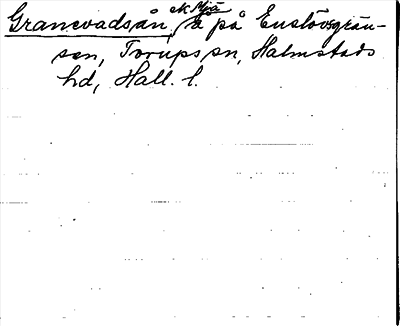 Granevadsån, å på Enslövsgrän-
sen, Torups sn, Halmstads
hd, Hall. l.